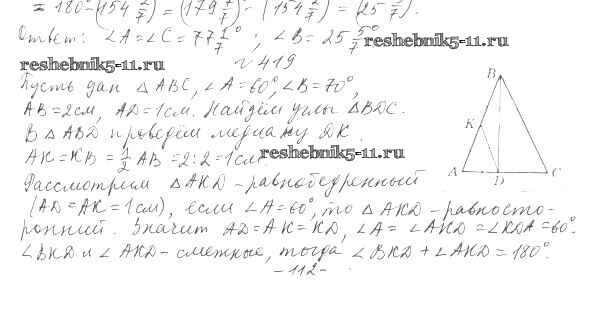 = 180° - (154 2/7) = (179 7/7) - (154 2/7) = (25 5/7).
Ответ: ∠A = ∠C = 77 1/7° ; ∠B = 25 5/7°
reshebnik5-11.ru
reshebnik5-11.ru
№ 419
Пусть дан △ABC, ∠A = 60°, ∠B = 70°,
AB = 2см, AD = 1см. Найдём углы △BDC.
В △ABD проведём медиану DK.
AK = KB = 1/2 AB = 2:2 = 1см
reshebnik5-11.ru
Рассмотрим △AKD - равнобедренный
(AD = AK = 1см), если ∠A = 60°, то △AKD - равносто-
ронний. Значит AD = AK = KD, ∠A = ∠AKD = ∠KDA = 60°.
∠BKD и ∠AKD - смежные, тогда ∠BKD + ∠AKD = 180°.
-112-
B
K
A
D
C